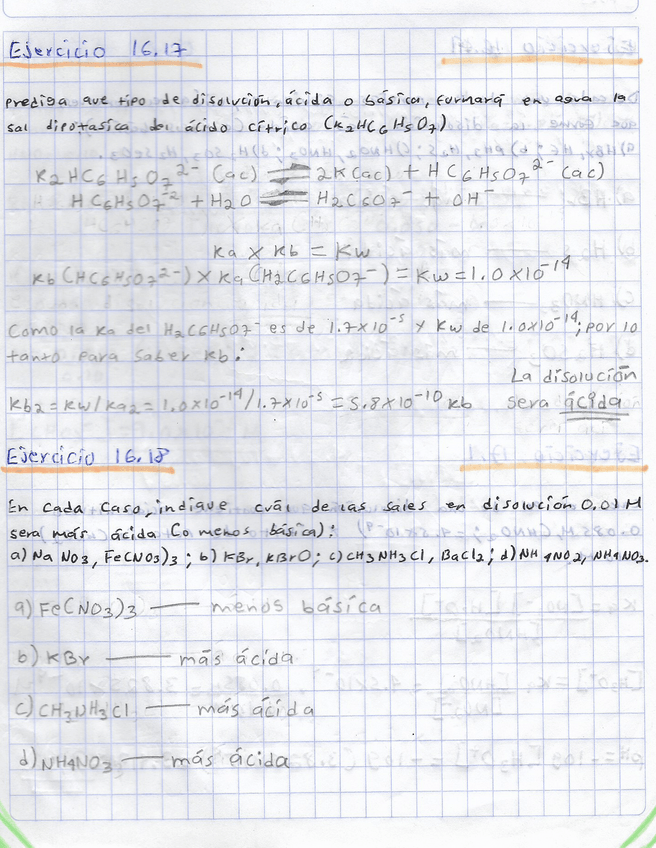 Ejercicio 16.17
Prediga que tipo de disolución, ácida o básica, formará en agua la
sal dipotasica del ácido cítrico (K2HC6H5O7)
K2HC6H5O7^2- (ac) ⇌ 2K(ac) + HC6H5O7^2- (ac)
HC6H5O7^-2 + H2O ⇌ H2C6O7^- + OH^-
Ka x Kb = Kw
Kb (HC6H5O7^2-) x Ka (H2C6H5O7^-) = Kw = 1.0 x 10^-14
Como la Ka del H2C6H5O7^- es de 1.7x10^-5 y Kw de 1.0x10^-14; por lo
tanto para saber Kb:
Kb2 = Kw/Ka2 = 1.0x10^-14/1.7x10^-5 = 5.8x10^-10 Kb
La disolución
sera ácida
Ejercicio 16.18
En cada caso, indique cuál de las sales en disolución 0.01 M
sera más ácida (o menos básica):
a) Na NO3, Fe(NO3)3; b) KBr, KBrO; c) CH3NH3Cl, BaCl2; d) NH4NO2, NH4NO3.
a) Fe(NO3)3 — menos básica
b) KBr — más ácida
c) CH3NH3Cl — más ácida
d) NH4NO3 — más ácida